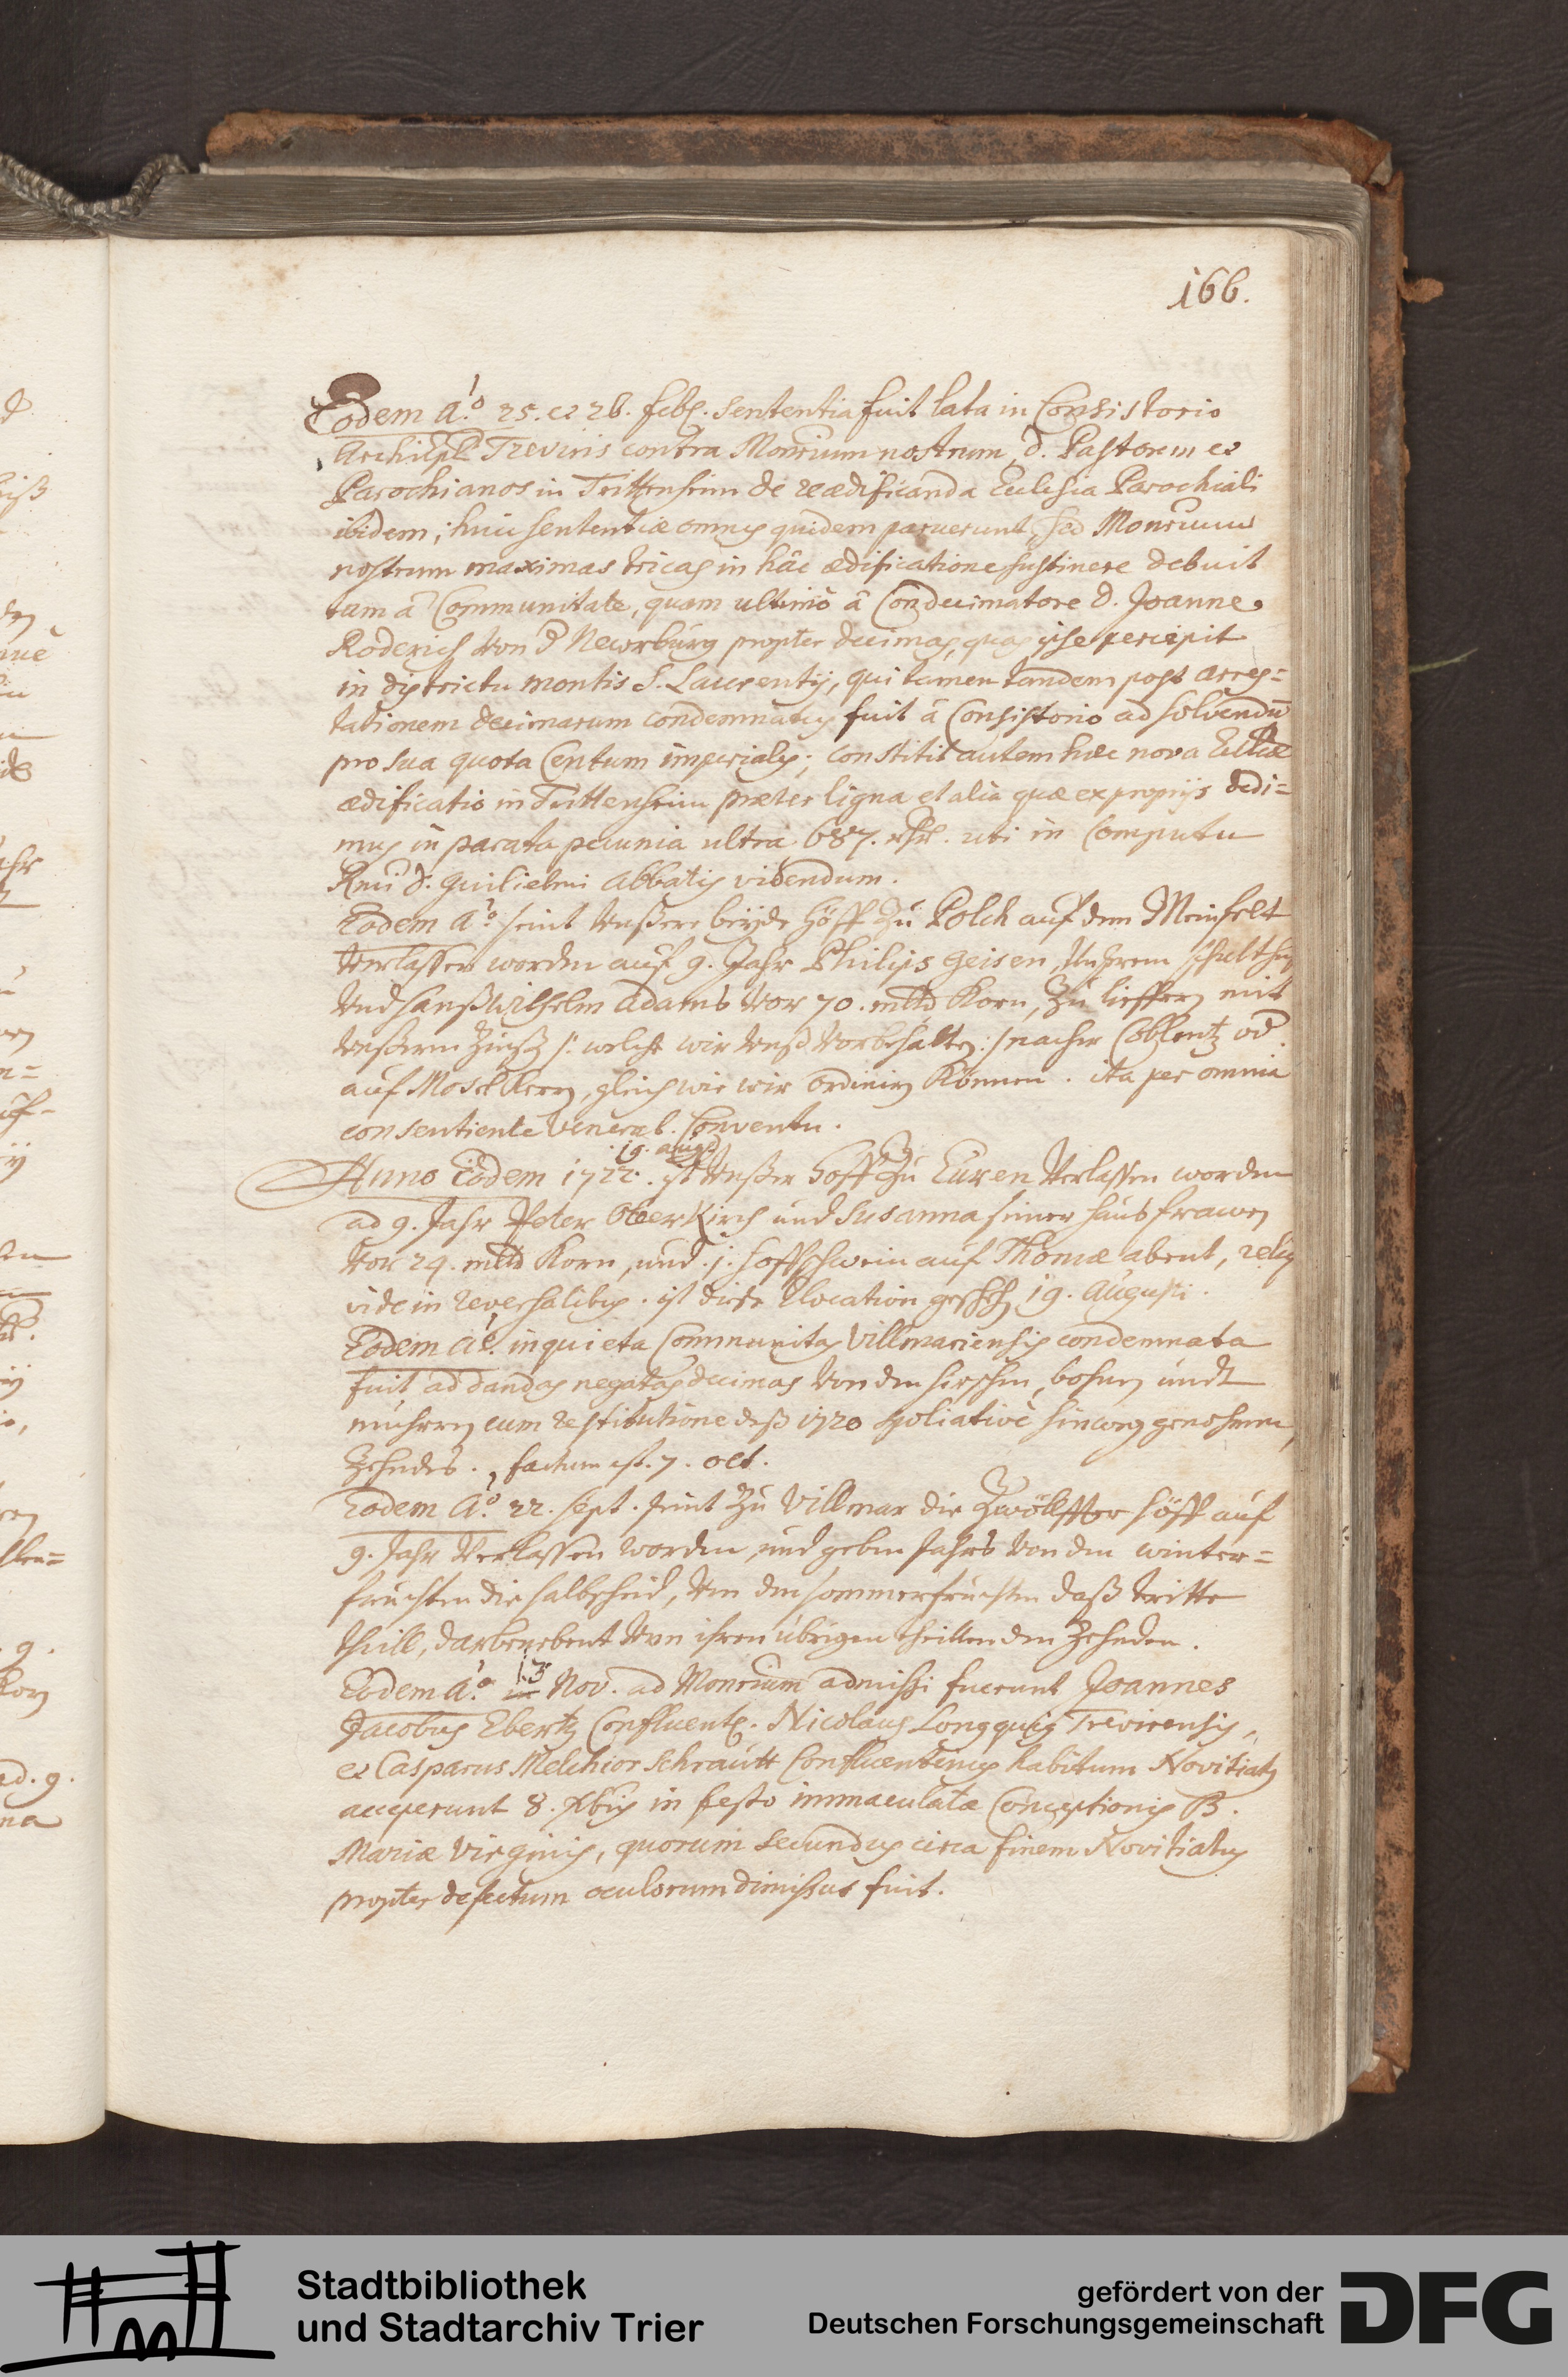 166.
Eodem a.o 25. et 26. feb. sententia fuit lata in Consistorio
Archiepli Treviris contra Monrium nostrum, d. Pastorem et
Parochianos in Trittenheim de reædificanda Ecclesia Parochiali
ibidem; huic sententiæ omnes quidem paruerunt, sed Monrium
nostrum maximas tricas in hâc ædificatione sustinere debuit
tam â Communitate, quam ultimô â Condecimatore d. Joanne
Roderich von d Newrburg propter decimas, quas ipse percipit
in districtu montis S. Laurentij, qui tamen tandem post arres=
tationem decimarum condemnatus fuit â Consistorio ad solvendū
pro sua quota Centum imperiales; constitit autem hæc nova Ecclæ
ædificatio in Trittenheim præter ligna et alia quæ ex proprijs dedi=
mus in parata pecunia ultra 687. uti in Computu
Rmi d. Guilielmi Abbatis videndum.
Eodem a.o seint unßere beyde höff zu Polch auf dem Meinfelt
verlassen worden auf 9. Jahr Philips Geisen, unßrem schultheis
und hanß wilhelm Adams vor 70. mltd Korn, zu lieffern mit
unßerm Zinß /: welche wir unß vorbehalten :/ nacher Coblentz od.
auf Mosel Kern, gleich wie wir ordiniren Können. ita per omnia
consentiente Venerab. Conventu.
19. augst
Anno Eodem 1722. ist unßer hoff zu Euren verlassen worden
ad 9. Jahr Peter Oberkirch und Susanna seiner hausfrawen
vor 24. mltd Korn, und .1. hoffschwein auf Thomæ abent, reliq
vide in reversalibus. ist diese Elocation geschehen 19. Augusti.
Eodem a.o inquieta Communitas Villmariensis condemnata
fuit ad dandas negatas decimas von den hirschen, bohnen undt
muhren cum restitutione deß 1720 spoliativè hinweg genohmenen
Zehndes. factum est. 7. oct.
Eodem a.o 22. sept. seint zu Villmar die Zwölffter höff auf
9. Jahr verlassen worden, und geben Jahrs von den winter=
früchten die halbscheid, von den sommerfrüchten daß tritte
theill, darbenebent von ihren übrigen theillen den Zehnden.
13
Eodem a.o in Nov. ad Monrium admissi fuerunt Joannes
Jacobus Ebertz Confluent. Nicolaus Longquig Trevirensis,
et Casparus Melchior Schrautt Confluentinus habitum Novitiatus
acceperunt 8. Xbris in festo immaculatæ Conceptionis B.
Mariæ Virginis, quorum secundus circa finem Novitiatus
propter defectum oculorum dimissus fuit.
Stadtbibliothek
und Stadtarchiv Trier
gefördert von der
Deutschen Forschungsgemeinschaft
DFG